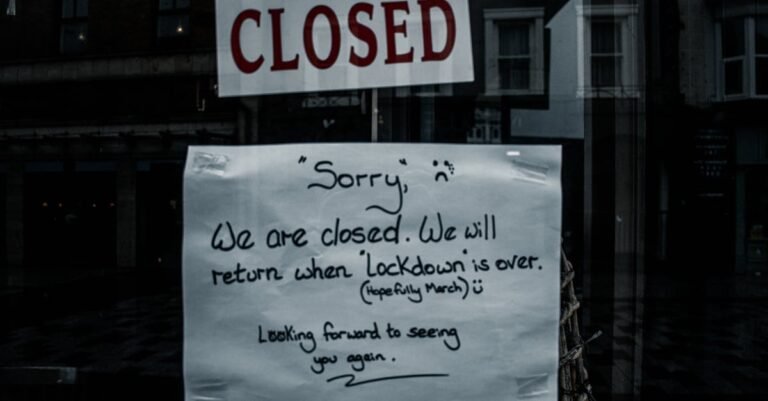 CLOSED
"Sorry",
We are closed. We will
return when "Lockdown" is over.
(Hopefully March)
Looking forward to seeing
you again.